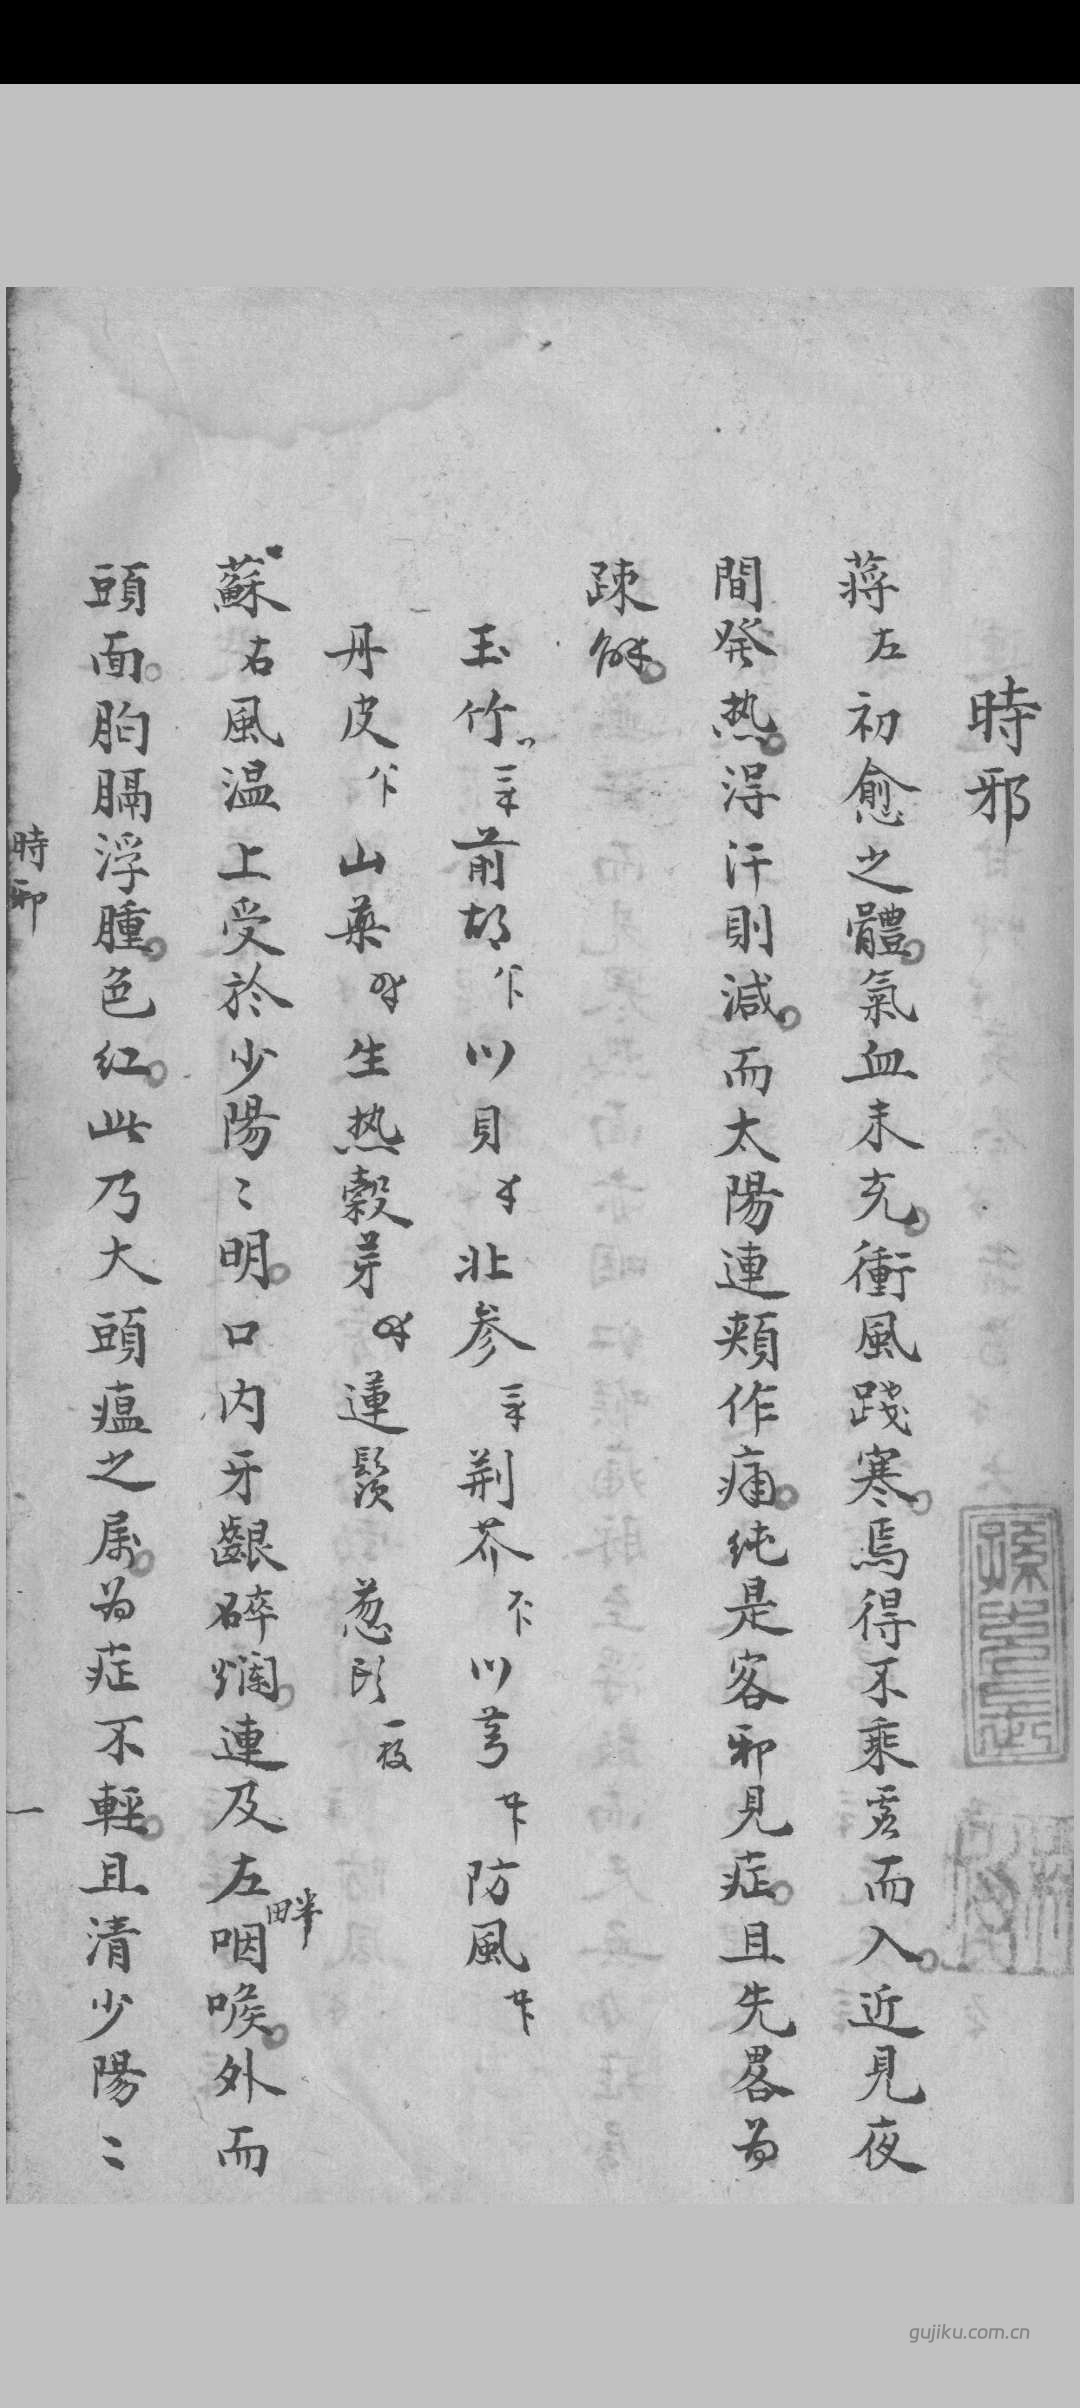 時邪
蔣左初愈之體氣血未充衝風踐寒焉得不乘虛而入近見夜
間發热淂汗則減而太陽連頰作痛純是客邪見症且先畧為
疎解
玉竹三錢前胡川貝北参三錢荆芥川芎防風
丹皮山藥生热穀芽蓮鬚葱頭一枚
蘇右風温上受於少陽〻明口内牙齦碎爛連及左畔咽喉外而
頭面胸膈浮腫色红此乃大頭瘟之属为症不輕且清少陽〻
時邪
一
gujiku.com.cn